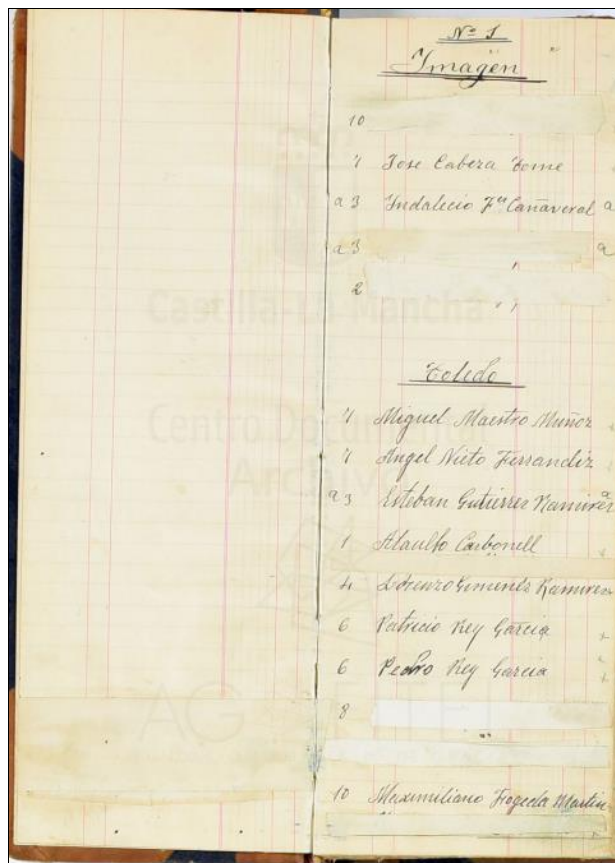 Nº 1
Imagen
10
7 Jose Cabeza Tome
a 3 Indalecio Fez Cañaveral a
a 3 a
2
Toledo
7 Miguel Maestro Muñoz
7 Angel Nieto Ferrandiz
a 3 Esteban Gutierrez Ramirez a
1 Ataulfo Carbonell
4 Lorenzo Gimenez Ramirez
6 Patricio Rey Garcia
6 Pedro Rey Garcia
8
10 Maximiliano Martin
Castilla-La Mancha
Centro Documental